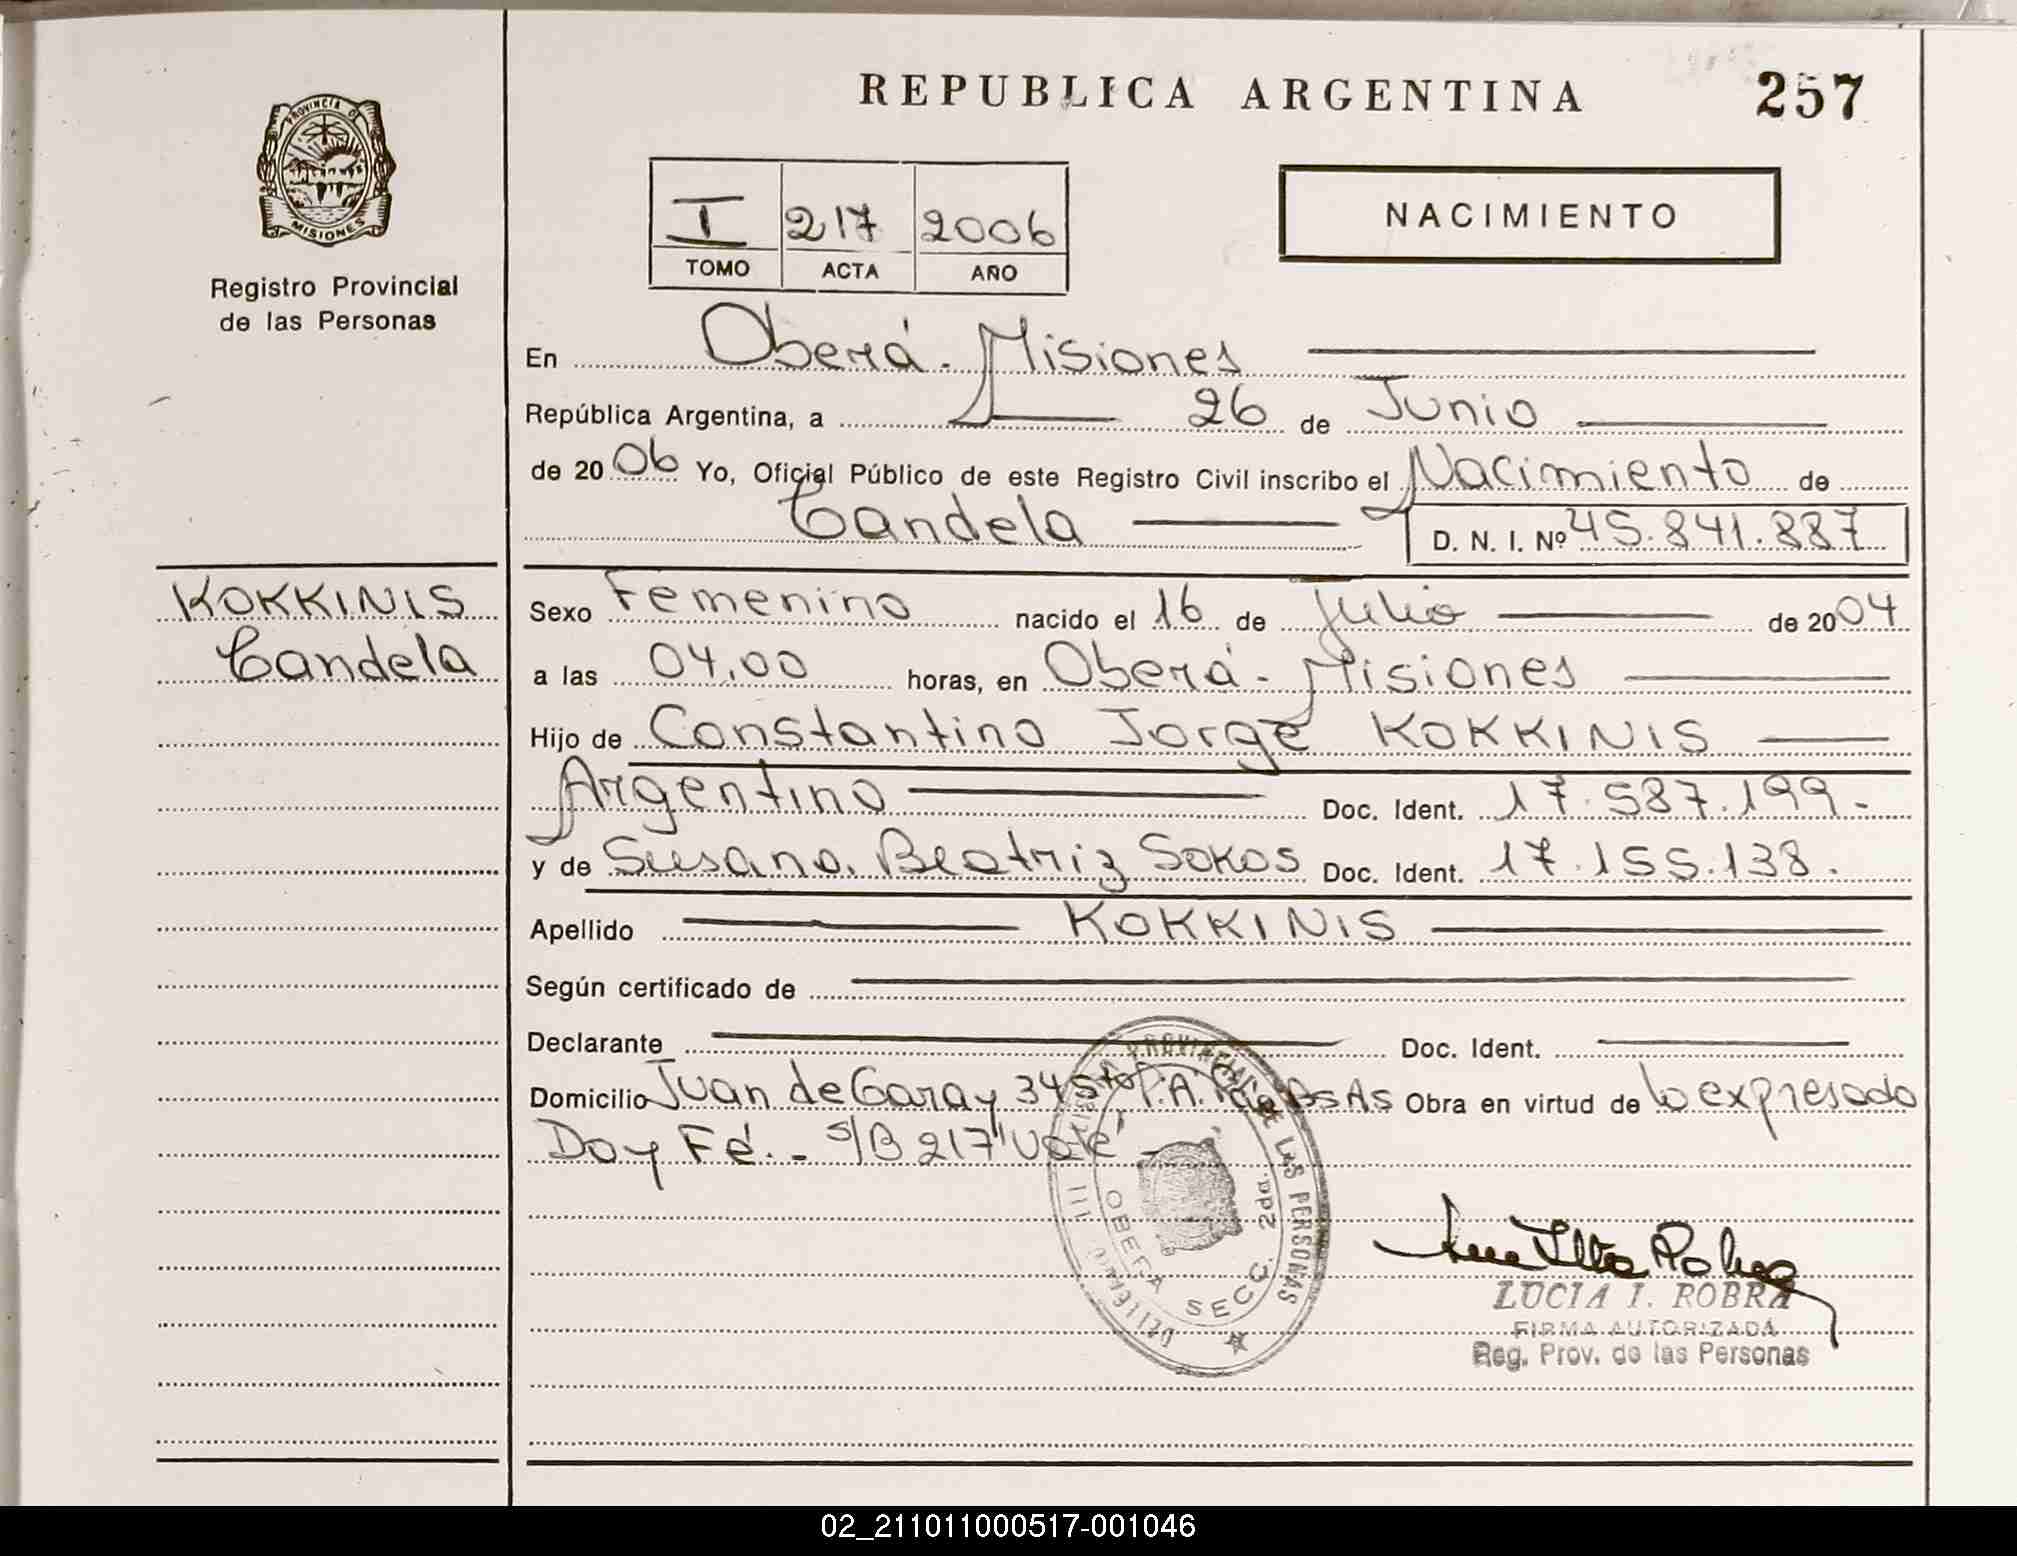 REPUBLICA ARGENTINA
257
PROVINCIA DE
MISIONES
Registro Provincial
de las Personas
I 217 2006
TOMO ACTA AÑO
NACIMIENTO
En Oberá - Misiones
República Argentina, a 26 de Junio
de 2006 Yo, Oficial Público de este Registro Civil inscribo el Nacimiento de
Candela D. N. I. Nº 45.841.887
KOKKINIS
Candela
Sexo Femenino nacido el 16 de Julio de 2004
a las 04,00 horas, en Oberá - Misiones
Hijo de Constantino Jorge KOKKINIS
Argentino Doc. Ident. 17.587.199.-
y de Susana Beatriz SOKOS Doc. Ident. 17.155.138.
Apellido KOKKINIS
Según certificado de
Declarante Doc. Ident.
Domicilio Juan de Garay 345 P.A. Bs As Obra en virtud de lo expresado
Doy Fé.- S/B 217 "Vale"
PROVINCIAL DE LAS PERSONAS
OBERA SECC. 2da.
LUCIA I. ROBRA
FIRMA AUTORIZADA
Reg. Prov. de las Personas
02_211011000517-001046